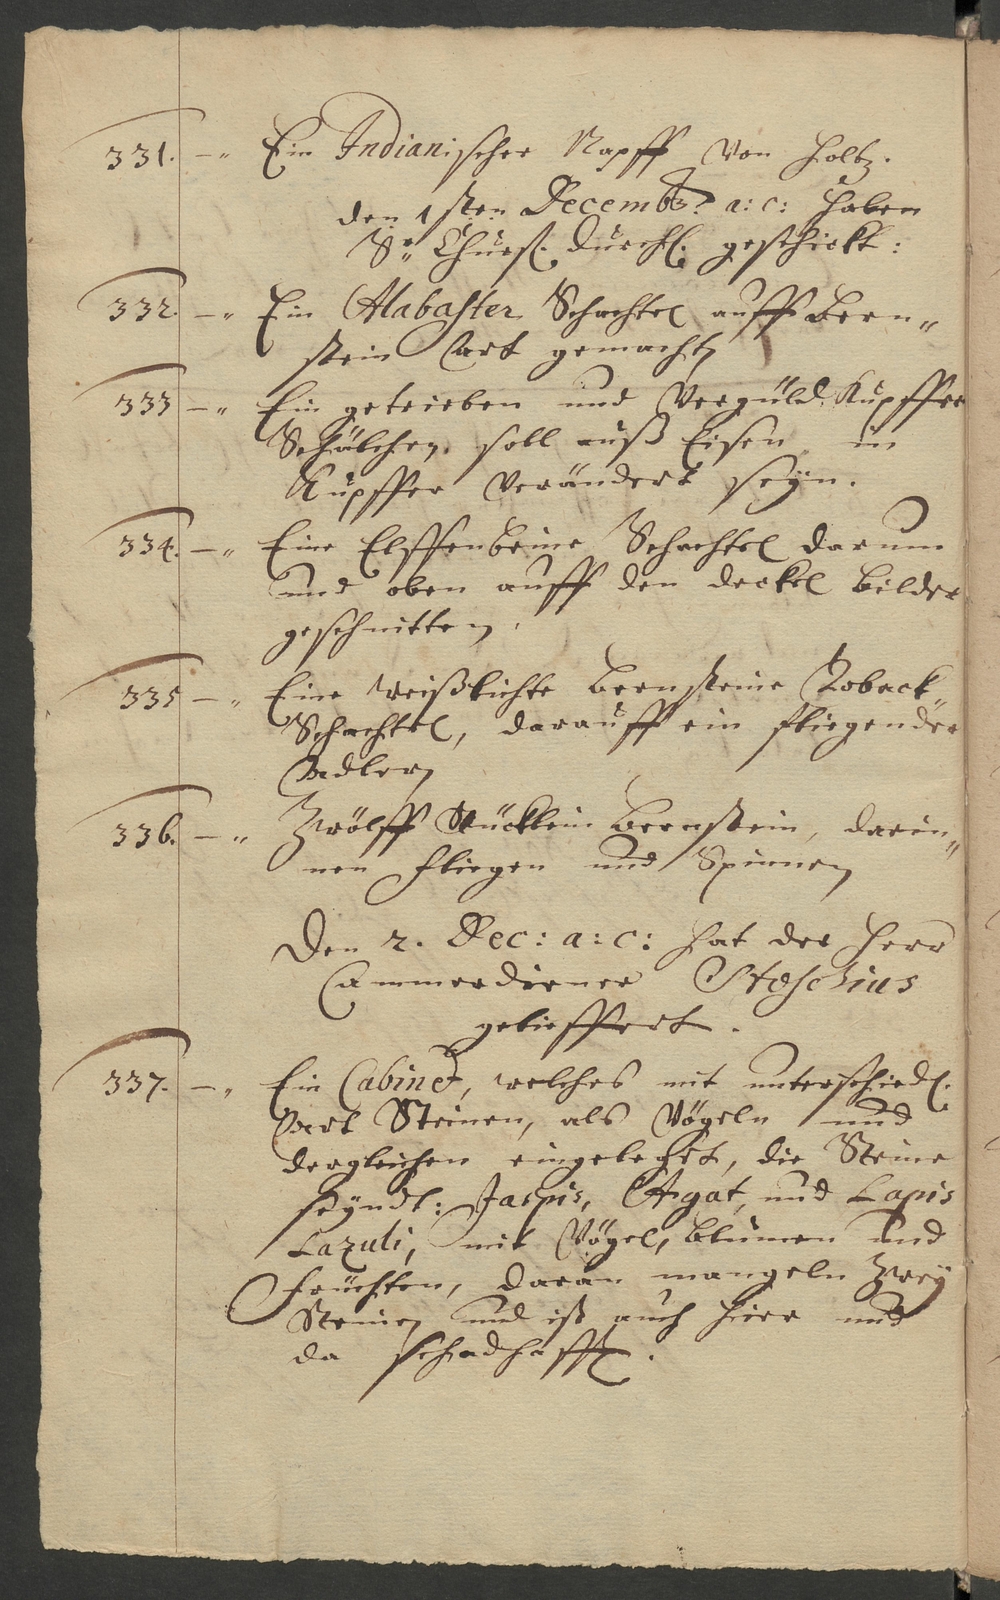 331. — " Ein Indianischer Napff von Holtz.
den 1sten Decembr: a: c: haben
Sr Churfl. Durchl. geschickt:
332. — " Ein Alabaster Schachtel auff Bern"
stein Art gemacht
333 — " Ein getrieben und vergüld. Kupffer
Schälchen, soll auß Eisen in
Kupffer verändert seÿn.
334. — " Eine Elffenbeine Schachtel darum
und oben auff den deckel bilder
geschnitten,
335 — " Eine weißlichte bernsteine Toback"
Schachtel, darauff ein fliegender
Adler
336. — " Zwölff Stücklein bernstein, darin"
nen fliegen und Spinnen
Den 2. Dec: a: c: hat der Herr
Cammerdiener Stoschius
gelieffert.
337. — " Ein Cabinet, welches mit unterschiedl.
Art Steinen, als Vögeln und
dergleichen eingeleget, die Steine
seÿndt: Jaspis, Agat, und Lapis
Lazuli, mit Vögel, blumen und
früchten, daran mangeln zweÿ
Steine und ist auch hier und
da schadhafft.